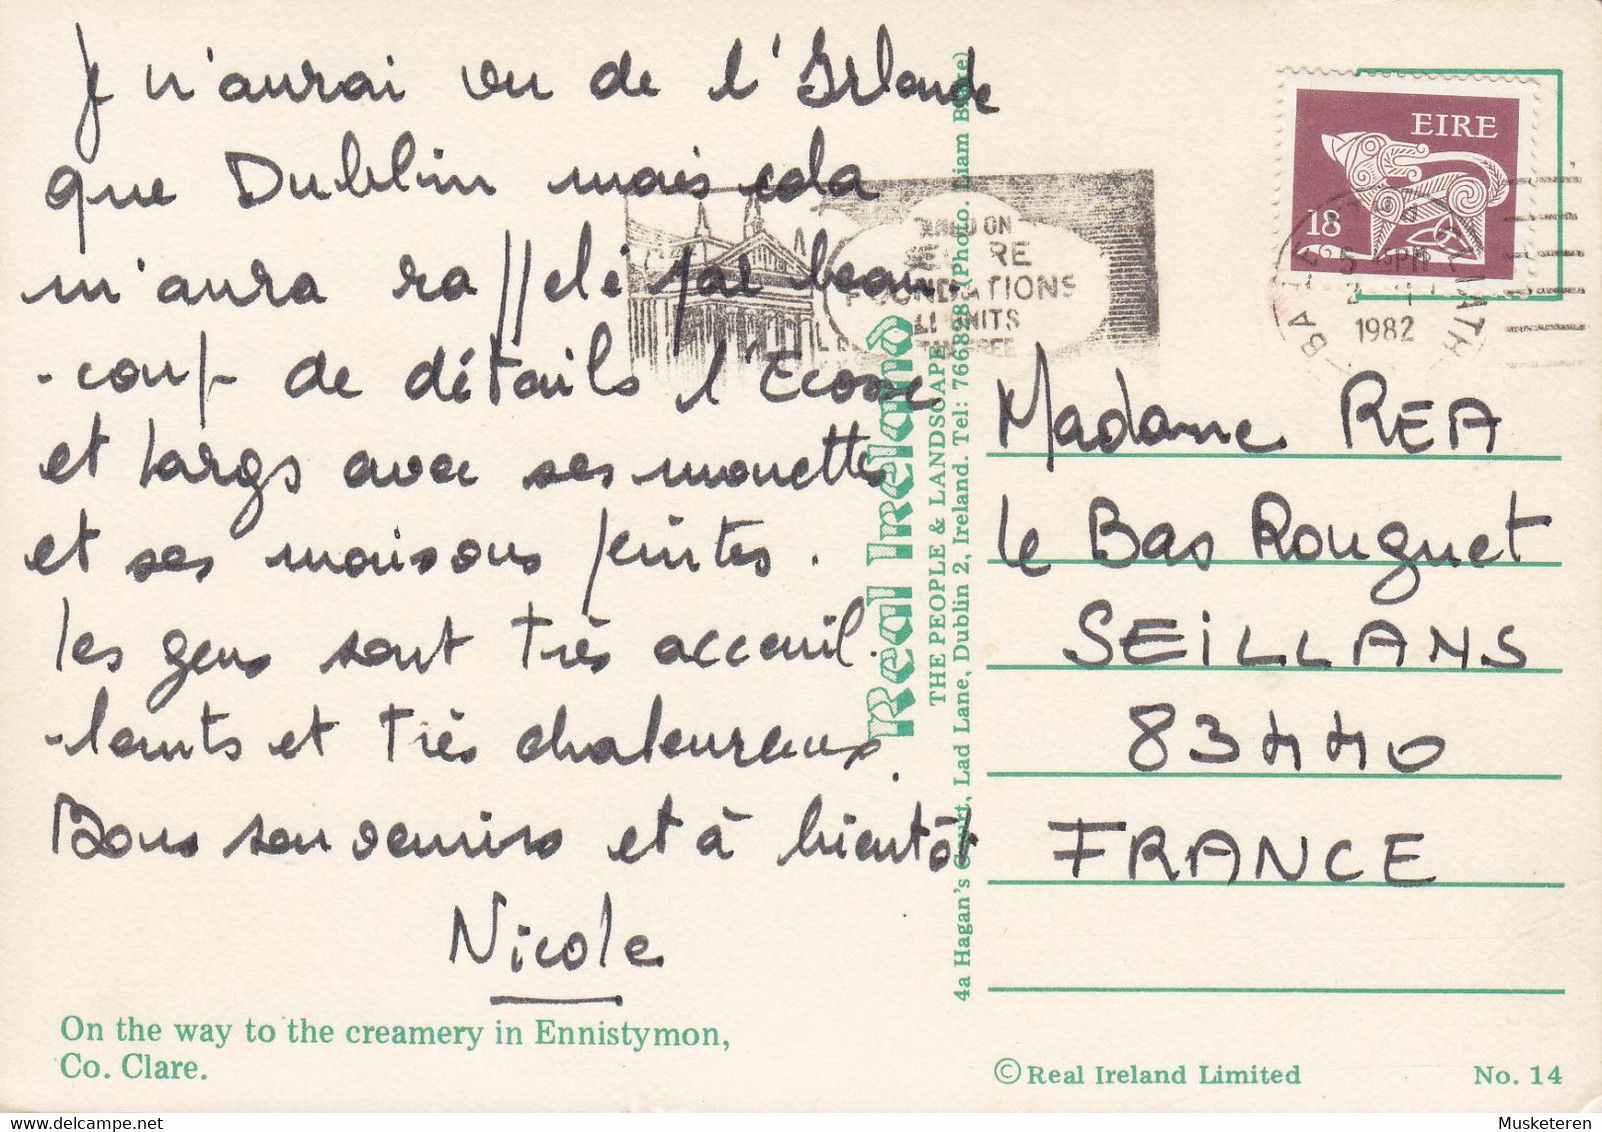 Je n'aurai vu de l'Irlande
que Dublin mais cela
m'aura rappelé par beau-
-coup de détails l'Ecosse
et Largs avec ses mouettes
et ses maisons peintes.
les gens sont très acceuil-
-lants et très chaleureux.
Bons souvenirs et à bientôt
Nicole
On the way to the creamery in Ennistymon,
Co. Clare.
Real Ireland
THE PEOPLE & LANDSCAPE
4a Hagan's Court, Lad Lane, Dublin 2, Ireland. Tel: 766898 (Photo. Liam Blake)
ON
FOUNDATIONS
EIRE
18
BAILE ÁTHA CLIATH
1982
Madame REA
le Bas Rouguet
SEILLANS
83440
FRANCE
© Real Ireland Limited
No. 14
Musketeren